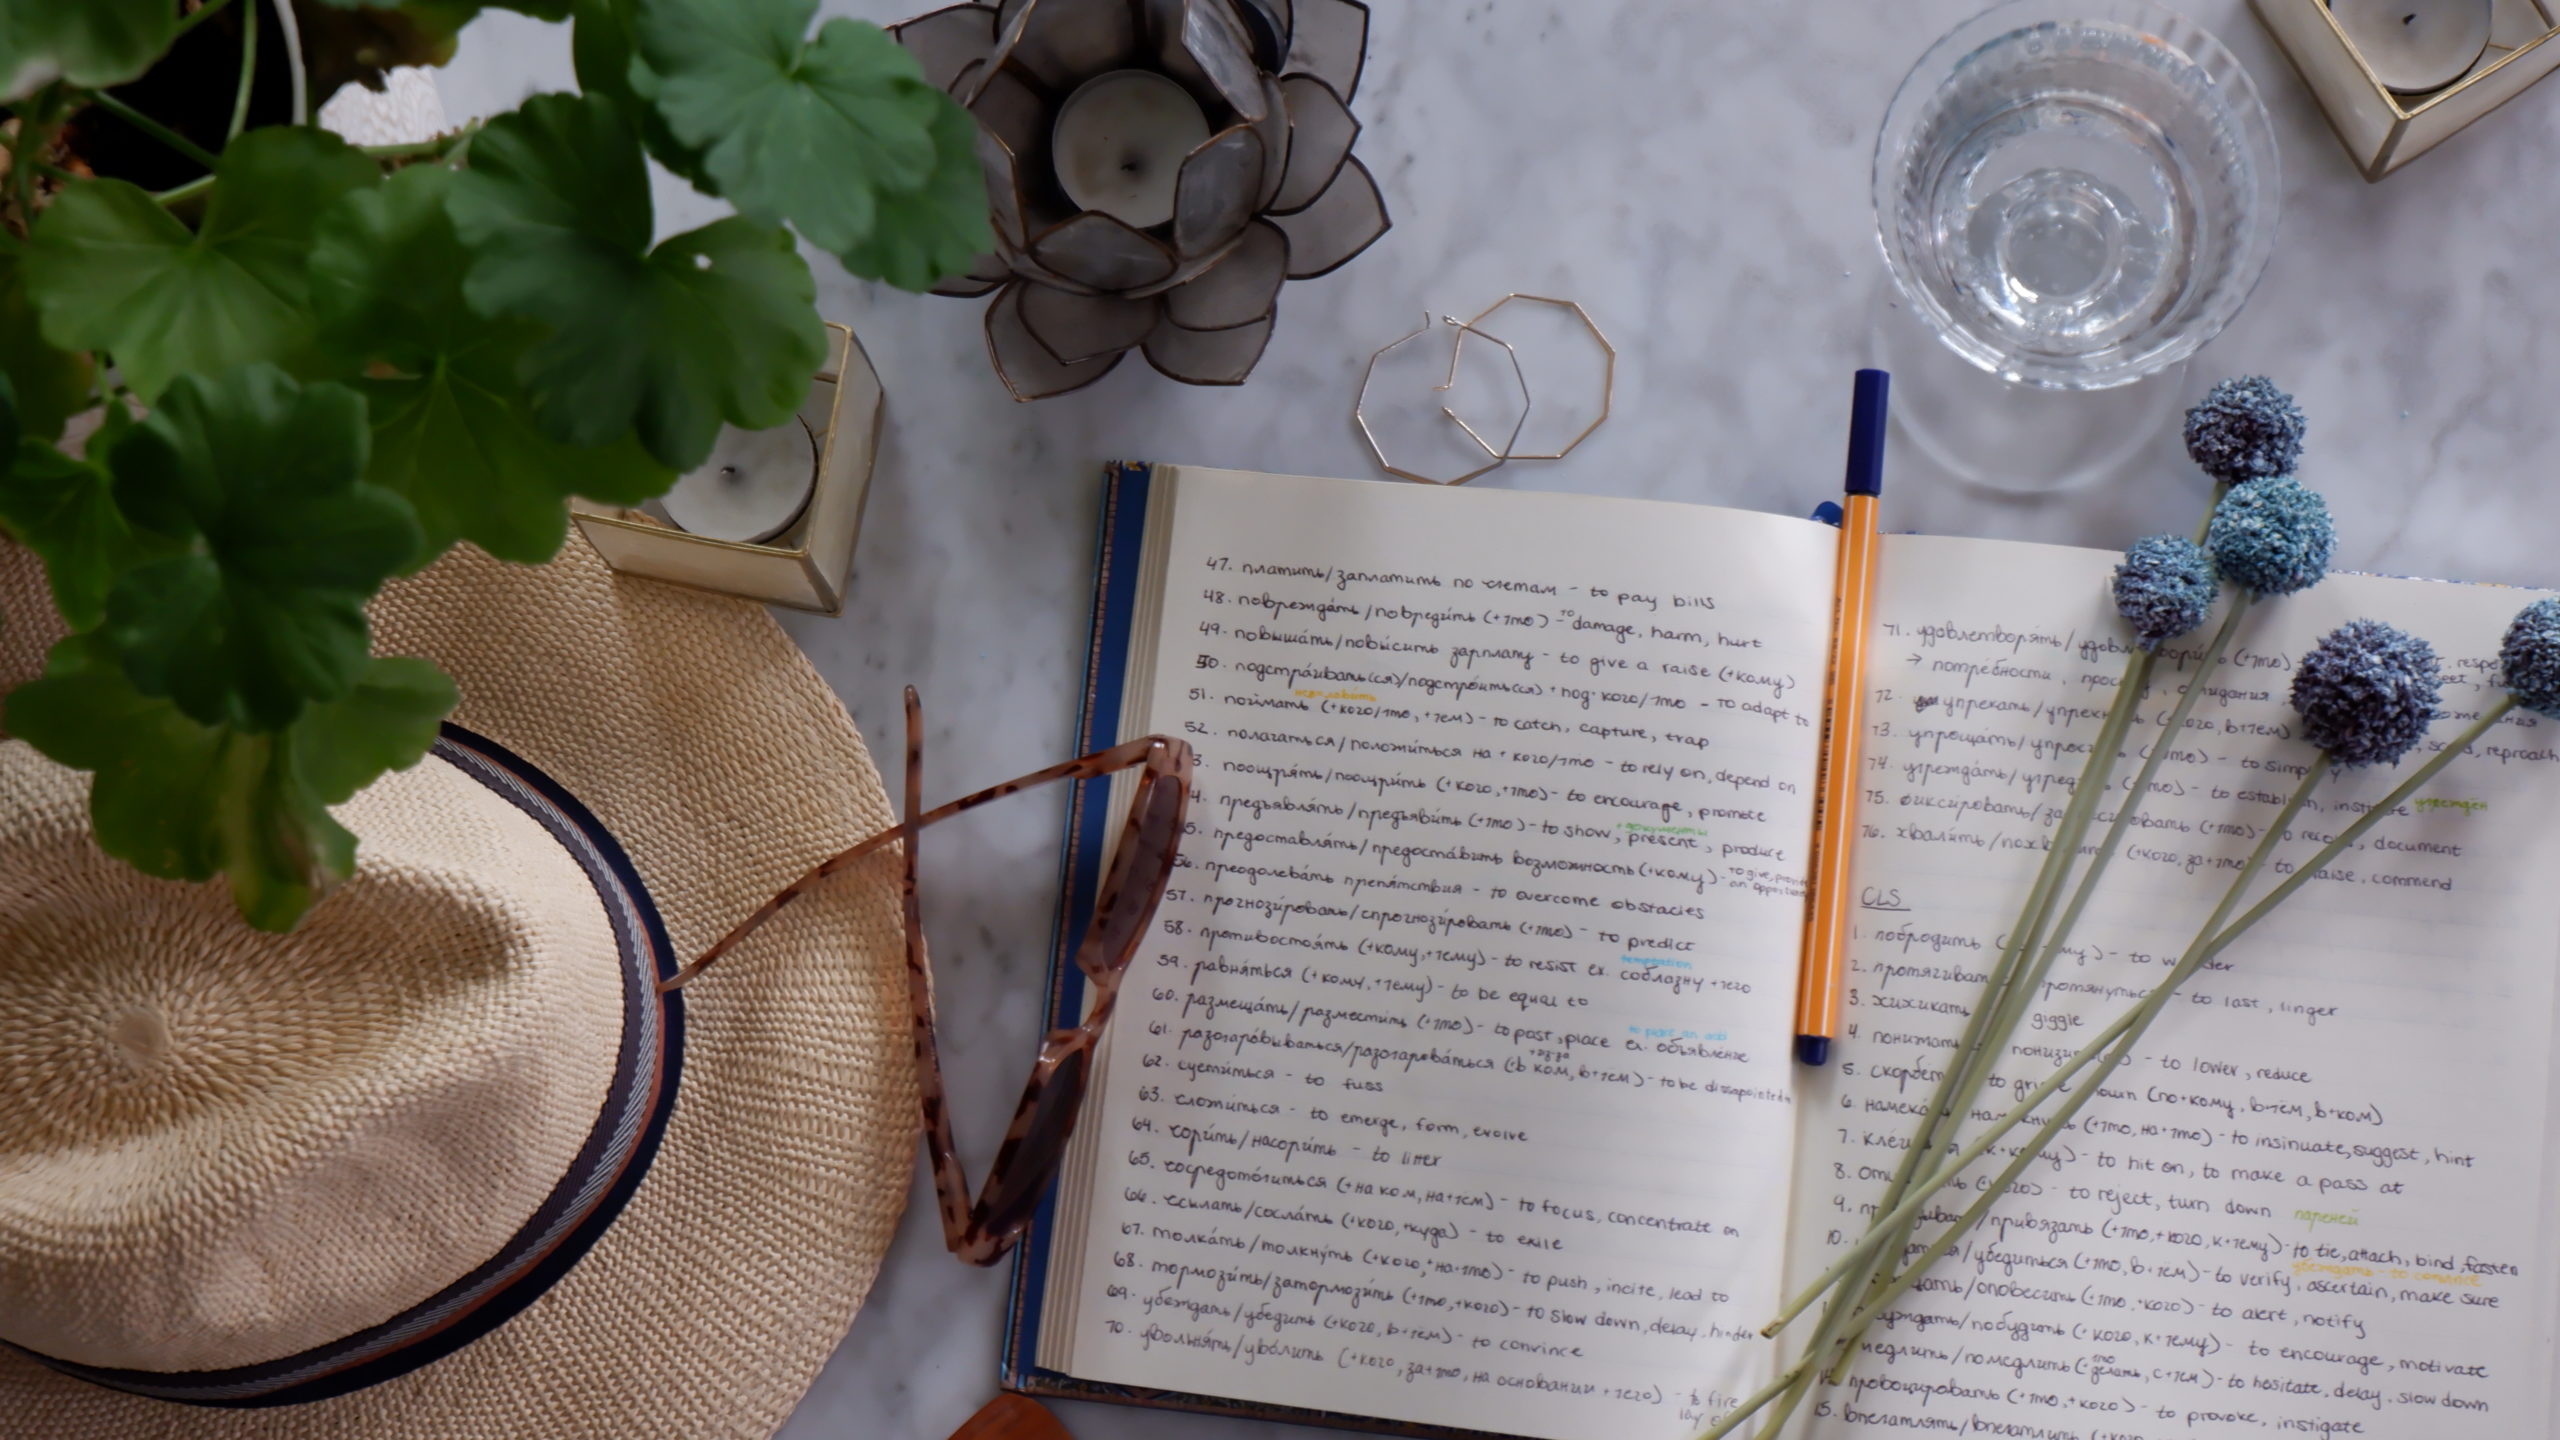 47. платить/заплатить по счетам - to pay bills
48. поврежда́ть/повреди́ть (+что) - to damage, harm, hurt
49. повыша́ть/повы́сить зарплату - to give a raise (+кому)
50. подстра́ивать(ся)/подстро́ить(ся) + под. кого/что - to adapt to
51. пойма́ть (+кого/что, +чем) - to catch, capture, trap
52. полагаться/положи́ться на + кого/что - to rely on, depend on
3. поощря́ть/поощри́ть (+кого, +что) - to encourage, promote
4. предъявля́ть/предъяви́ть (+что) - to show, present, product
+документы
5. предоставля́ть/предоста́вить возможность (+кому) - to give, an
56. преодолева́ть препя́тствия - to overcome obstacles
57. прогнози́ровать/спрогнози́ровать (+что) - to predict
58. противостоя́ть (+кому, +чему) - to resist ex. соблазну +чего
temptation
59. равня́ться (+кому, +чему) - to be equal to
60. размеща́ть/размести́ть (+что) - to post, place ex. объявление
to place an add
61. разочаро́вываться/разочарова́ться (в ком, в+чём) - to be disappointed
+из-за
62. суети́ться - to fuss
63. сложи́ться - to emerge, form, evolve
64. сори́ть/насори́ть - to litter
65. сосредото́читься (+на ком, на+чём) - to focus, concentrate on
66. ссылать/сосла́ть (+кого, +куда) - to exile
67. толка́ть/толкну́ть (+кого, +на+что) - to push, incite, lead to
68. тормози́ть/затормози́ть (+что, +кого) - to slow down, delay, hinder
69. убеждать/убедить (+кого, в+чём) - to convince
70. увольня́ть/уво́лить (+кого, за+что, на основании +чего) - to fire
lay
71. удовлетворя́ть/ (+что)
→ потре́бности,
72. упрекать/ (+кого, в+чём) reproach
73. упроща́ть/ - to
74. учрежда́ть/ (+что) - to учреждён
75. фикси́ровать/ (+что) document
76. хвали́ть/ (+кого, за+что) - to commend
CLS
1. побродить - to
2. - to last, linger
3. хихикать giggle
4. - to lower, reduce
5. (по+кому, в+чём, в+ком)
6. (+что, на+что) - to insinuate, suggest, hint
7. - to hit on, to make a pass at
8. - to reject, turn down парней
9. /привязать (+что, +кого, к+чему) - to tie, attach, bind, fasten
10. /убедиться (+что, в+чём) - to verify, ascertain, make sure
убеждать - to convince
/оповестить (+что, +кого) - to alert, notify
/побудить (+кого, к+чему) - to encourage, motivate
медлить/помедлить (+что делать, с+чем) - to hesitate, delay, slow down
провоцировать (+что, +кого) - to provoke, instigate
15. впечатлять/впечатлить